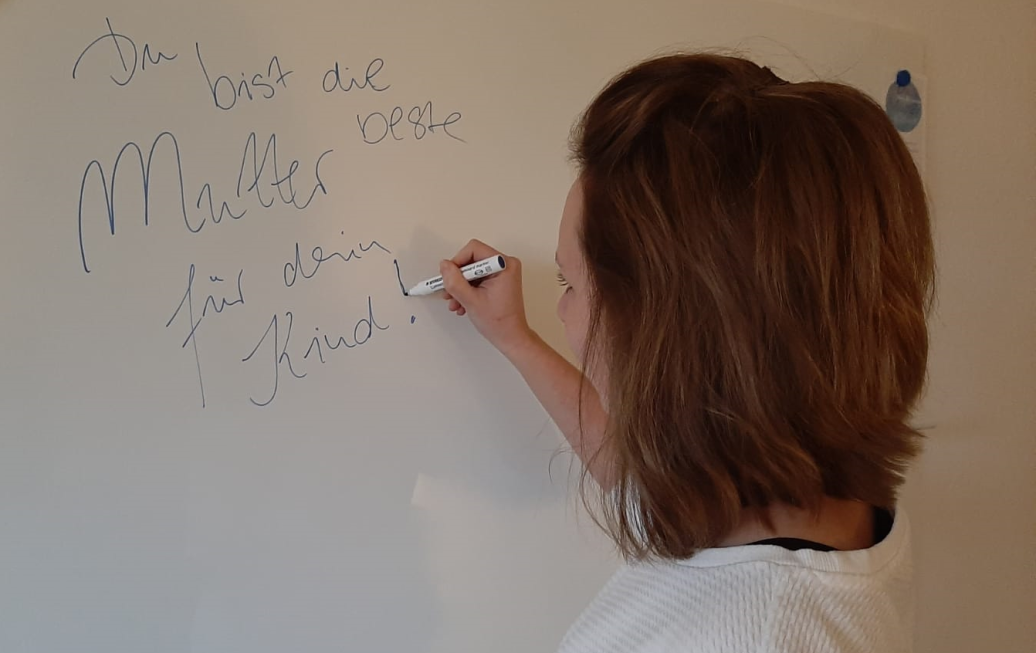 Du bist die
beste
Mutter
für dein
Kind!